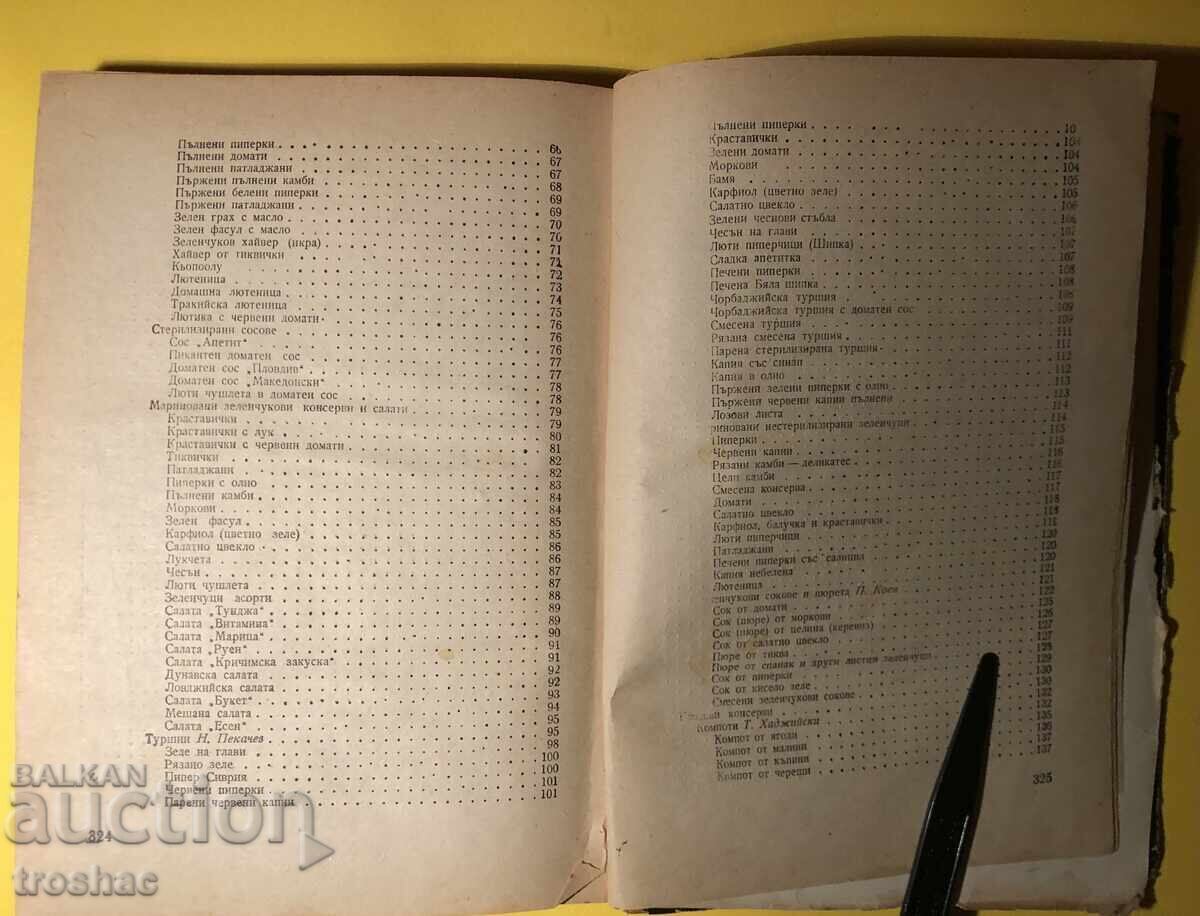 Пълнени пиперки 66
Пълнени домати 67
Пълнени патладжани 67
Пържени пълнени камби 68
Пържени белени пиперки 69
Пържени патладжани 69
Зелен грах с масло 70
Зелен фасул с масло 70
Зеленчуков хайвер (икра) 71
Хайвер от тиквички 71
Кьопоолу 72
Лютеница 73
Домашна лютеница 74
Тракийска лютеница 75
Лютика с червени домати 76
Стерилизирани сосове 76
Сос „Апетит“ 76
Пикантен доматен сос 77
Доматен сос „Пловдив“ 77
Доматен сос „Македонски“ 78
Люти чушлета в доматен сос 78
Мариновани зеленчукови консерви и салати 79
Краставички 79
Краставички с лук 80
Краставички с червени домати 81
Тиквички 82
Патладжани 82
Пиперки с олио 83
Пълнени камби 84
Моркови 84
Зелен фасул 85
Карфиол (цветно зеле) 85
Салатно цвекло 86
Лукчета 86
Чесън 87
Люти чушлета 87
Зеленчуци асорти 88
Салата „Тунджа“ 89
Салата „Витамина“ 89
Салата „Марица“ 90
Салата „Руен“ 91
Салата „Кричимска закуска“ 91
Дунавска салата 92
Ловджийска салата 92
Салата „Букет“ 93
Мешана салата 94
Салата „Есен“ 95
Туршии Н. Пекачев 95
Зеле на глави 98
Рязано зеле 100
Пипер Сиврия 100
Червени пиперки 101
Парени червени капии 101
324
ълнени пиперки 10
Краставички 104
Зелени домати 104
Моркови 104
Бамя 105
Карфиол (цветно зеле) 105
Салатно цвекло 106
Зелени чеснови стъбла 106
Чесън на глави 107
Люти пиперчици (Шипка) 107
Сладка апетитка 107
Печени пиперки 108
Печена Бяла шипка 108
Чорбаджийска туршия 108
Чорбаджийска туршия с доматен сос 109
Смесена туршия 109
Рязана смесена туршия 111
Парена стерилизирана туршия 111
Капия със синап 112
Капия в олио 112
Пържени зелени пиперки с олио 113
Пържени червени капии пълнени 113
Лозови листа 114
риновани нестерилизирани зеленчуци 114
Пиперки 115
Червени капии 115
Рязани камби — деликатес 116
Цели камби 116
Смесена консерва 117
Домати 117
Салатно цвекло 118
Карфиол, балучка и краставички 118
Люти пиперчици 120
Патладжани 120
Печени пиперки със салица 120
Капия небелена 121
Лютеница 121
енчукови сокове и пюрета П. Коев 122
Сок от домати 125
Сок (пюре) от моркови 126
Сок (пюре) от целина (керевиз) 127
Сок от салатно цвекло 127
Пюре от тиква 128
Пюре от спанак и други листни зеленчуци 129
Сок от пиперки 130
Сок от кисело зеле 130
Смесени зеленчукови сокове 132
консерви 135
Компоти Т. Хаджийски 136
Компот от ягоди 137
Компот от малини 137
Компот от къпини
Компот от череши
325
BALKAN
auction
troshac